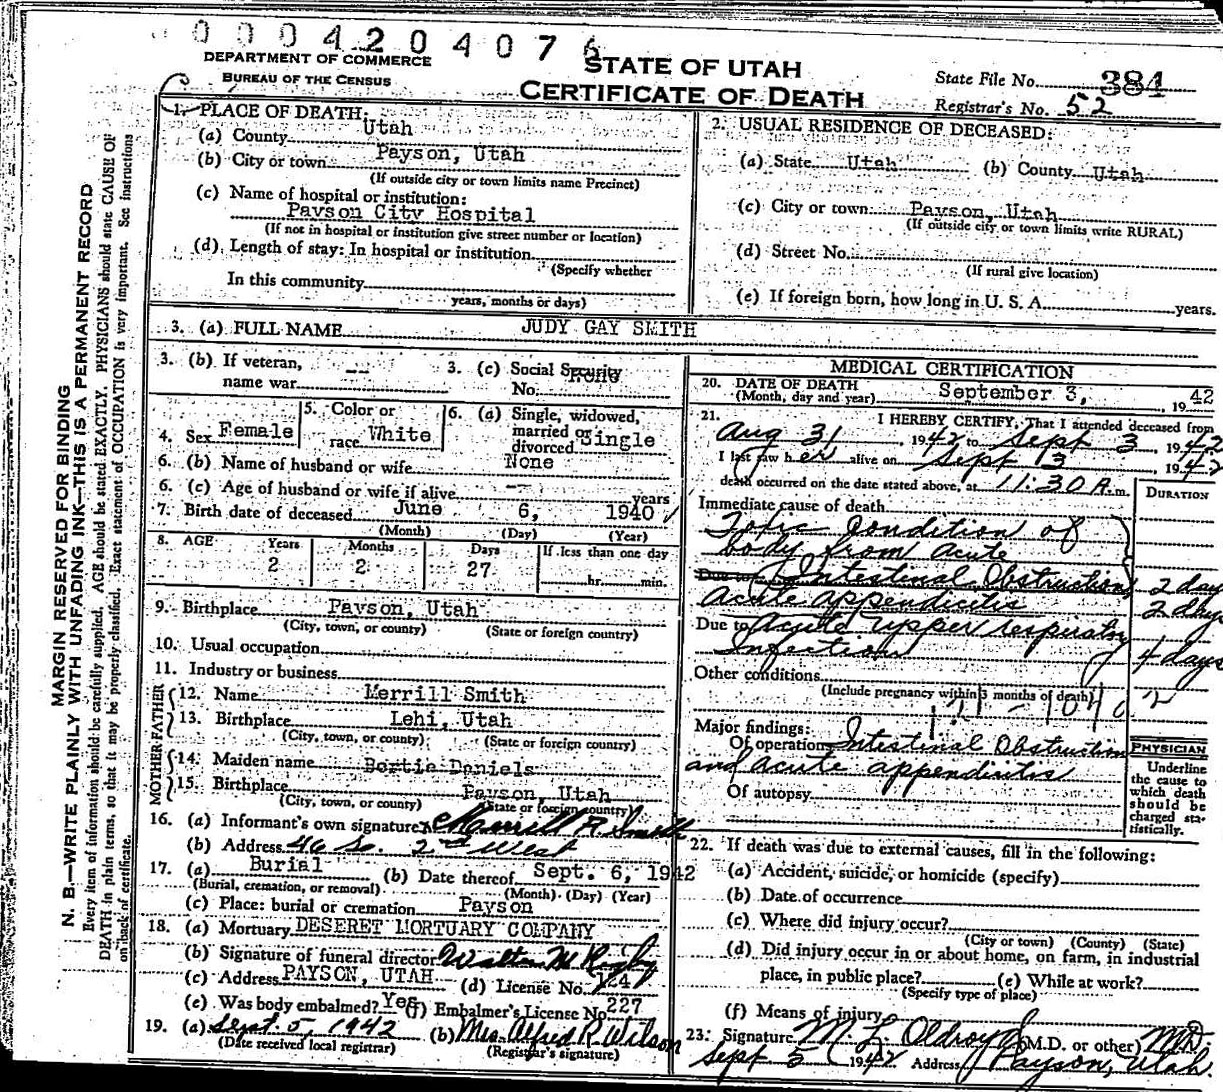 0004204076
DEPARTMENT OF COMMERCE
BUREAU OF THE CENSUS
STATE OF UTAH
CERTIFICATE OF DEATH
State File No. 384
Registrar's No. 52
MARGIN RESERVED FOR BINDING
N. B.—WRITE PLAINLY WITH UNFADING INK—THIS IS A PERMANENT RECORD
Every item of information should be carefully supplied. AGE should be stated EXACTLY. PHYSICIANS should state CAUSE OF
DEATH in plain terms, so that it may be properly classified. Exact statement of OCCUPATION is very important. See instructions
on back of certificate.
1. PLACE OF DEATH:
(a) County Utah
(b) City or town Payson, Utah
(If outside city or town limits name Precinct)
(c) Name of hospital or institution:
Payson City Hospital
(If not in hospital or institution give street number or location)
(d) Length of stay: In hospital or institution
(Specify whether
In this community
years, months or days)
2. USUAL RESIDENCE OF DECEASED:
(a) State Utah (b) County Utah
(c) City or town Payson, Utah
(If outside city or town limits write RURAL)
(d) Street No.
(If rural give location)
(e) If foreign born, how long in U. S. A. years.
3. (a) FULL NAME JUDY GAY SMITH
3. (b) If veteran, name war --
3. (c) Social Security No. None
4. Sex Female
5. Color or race White
6. (a) Single, widowed, married or divorced Single
6. (b) Name of husband or wife None
6. (c) Age of husband or wife if alive -- years
7. Birth date of deceased June 6, 1940
(Month) (Day) (Year)
8. AGE Years Months Days If less than one day
2 2 27 hr. min.
9. Birthplace Payson, Utah
(City, town, or county) (State or foreign country)
10. Usual occupation
11. Industry or business
FATHER
12. Name Merrill Smith
13. Birthplace Lehi, Utah
(City, town, or county) (State or foreign country)
MOTHER
14. Maiden name Bertie Daniels
15. Birthplace Payson, Utah
(City, town, or county) (State or foreign country)
16. (a) Informant's own signature Merrill R. Smith
(b) Address 46 So. 2nd West
17. (a) Burial (b) Date thereof Sept. 6, 1942
(Burial, cremation, or removal) (Month) (Day) (Year)
(c) Place: burial or cremation Payson
18. (a) Mortuary DESERET MORTUARY COMPANY
(b) Signature of funeral director Walter M
(c) Address PAYSON, UTAH (d) License No. 124
(e) Was body embalmed? Yes (f) Embalmer's License No. 227
19. (a) Sept. 5, 1942 (b) Mrs. Alfred R. Wilson
(Date received local registrar) (Registrar's signature)
MEDICAL CERTIFICATION
20. DATE OF DEATH September 3, 1942
(Month, day and year)
21. I HEREBY CERTIFY, That I attended deceased from
Aug 31 1942 to Sept 3 1942
I last saw her alive on Sept 3 1942
death occurred on the date stated above, at 11:30 A.m.
DURATION
Immediate cause of death
Toxic Condition of
body from acute
Due to Intestinal Obstruction 2 days
Acute appendicitis 2 days
Due to Acute upper respiratory
Infection 4 days
Other conditions
(Include pregnancy within 3 months of death)
Major findings:
Of operations Intestinal Obstruction
and acute appendicitis
Of autopsy
PHYSICIAN
Underline
the cause to
which death
should be
charged sta-
tistically.
22. If death was due to external causes, fill in the following:
(a) Accident, suicide, or homicide (specify)
(b) Date of occurrence
(c) Where did injury occur?
(City or town) (County) (State)
(d) Did injury occur in or about home, on farm, in industrial
place, in public place? (e) While at work?
(Specify type of place)
(f) Means of injury
23. Signature M L Oldroyd (M.D. or other) M.D.
Sept 5 1942 Address Payson, Utah.